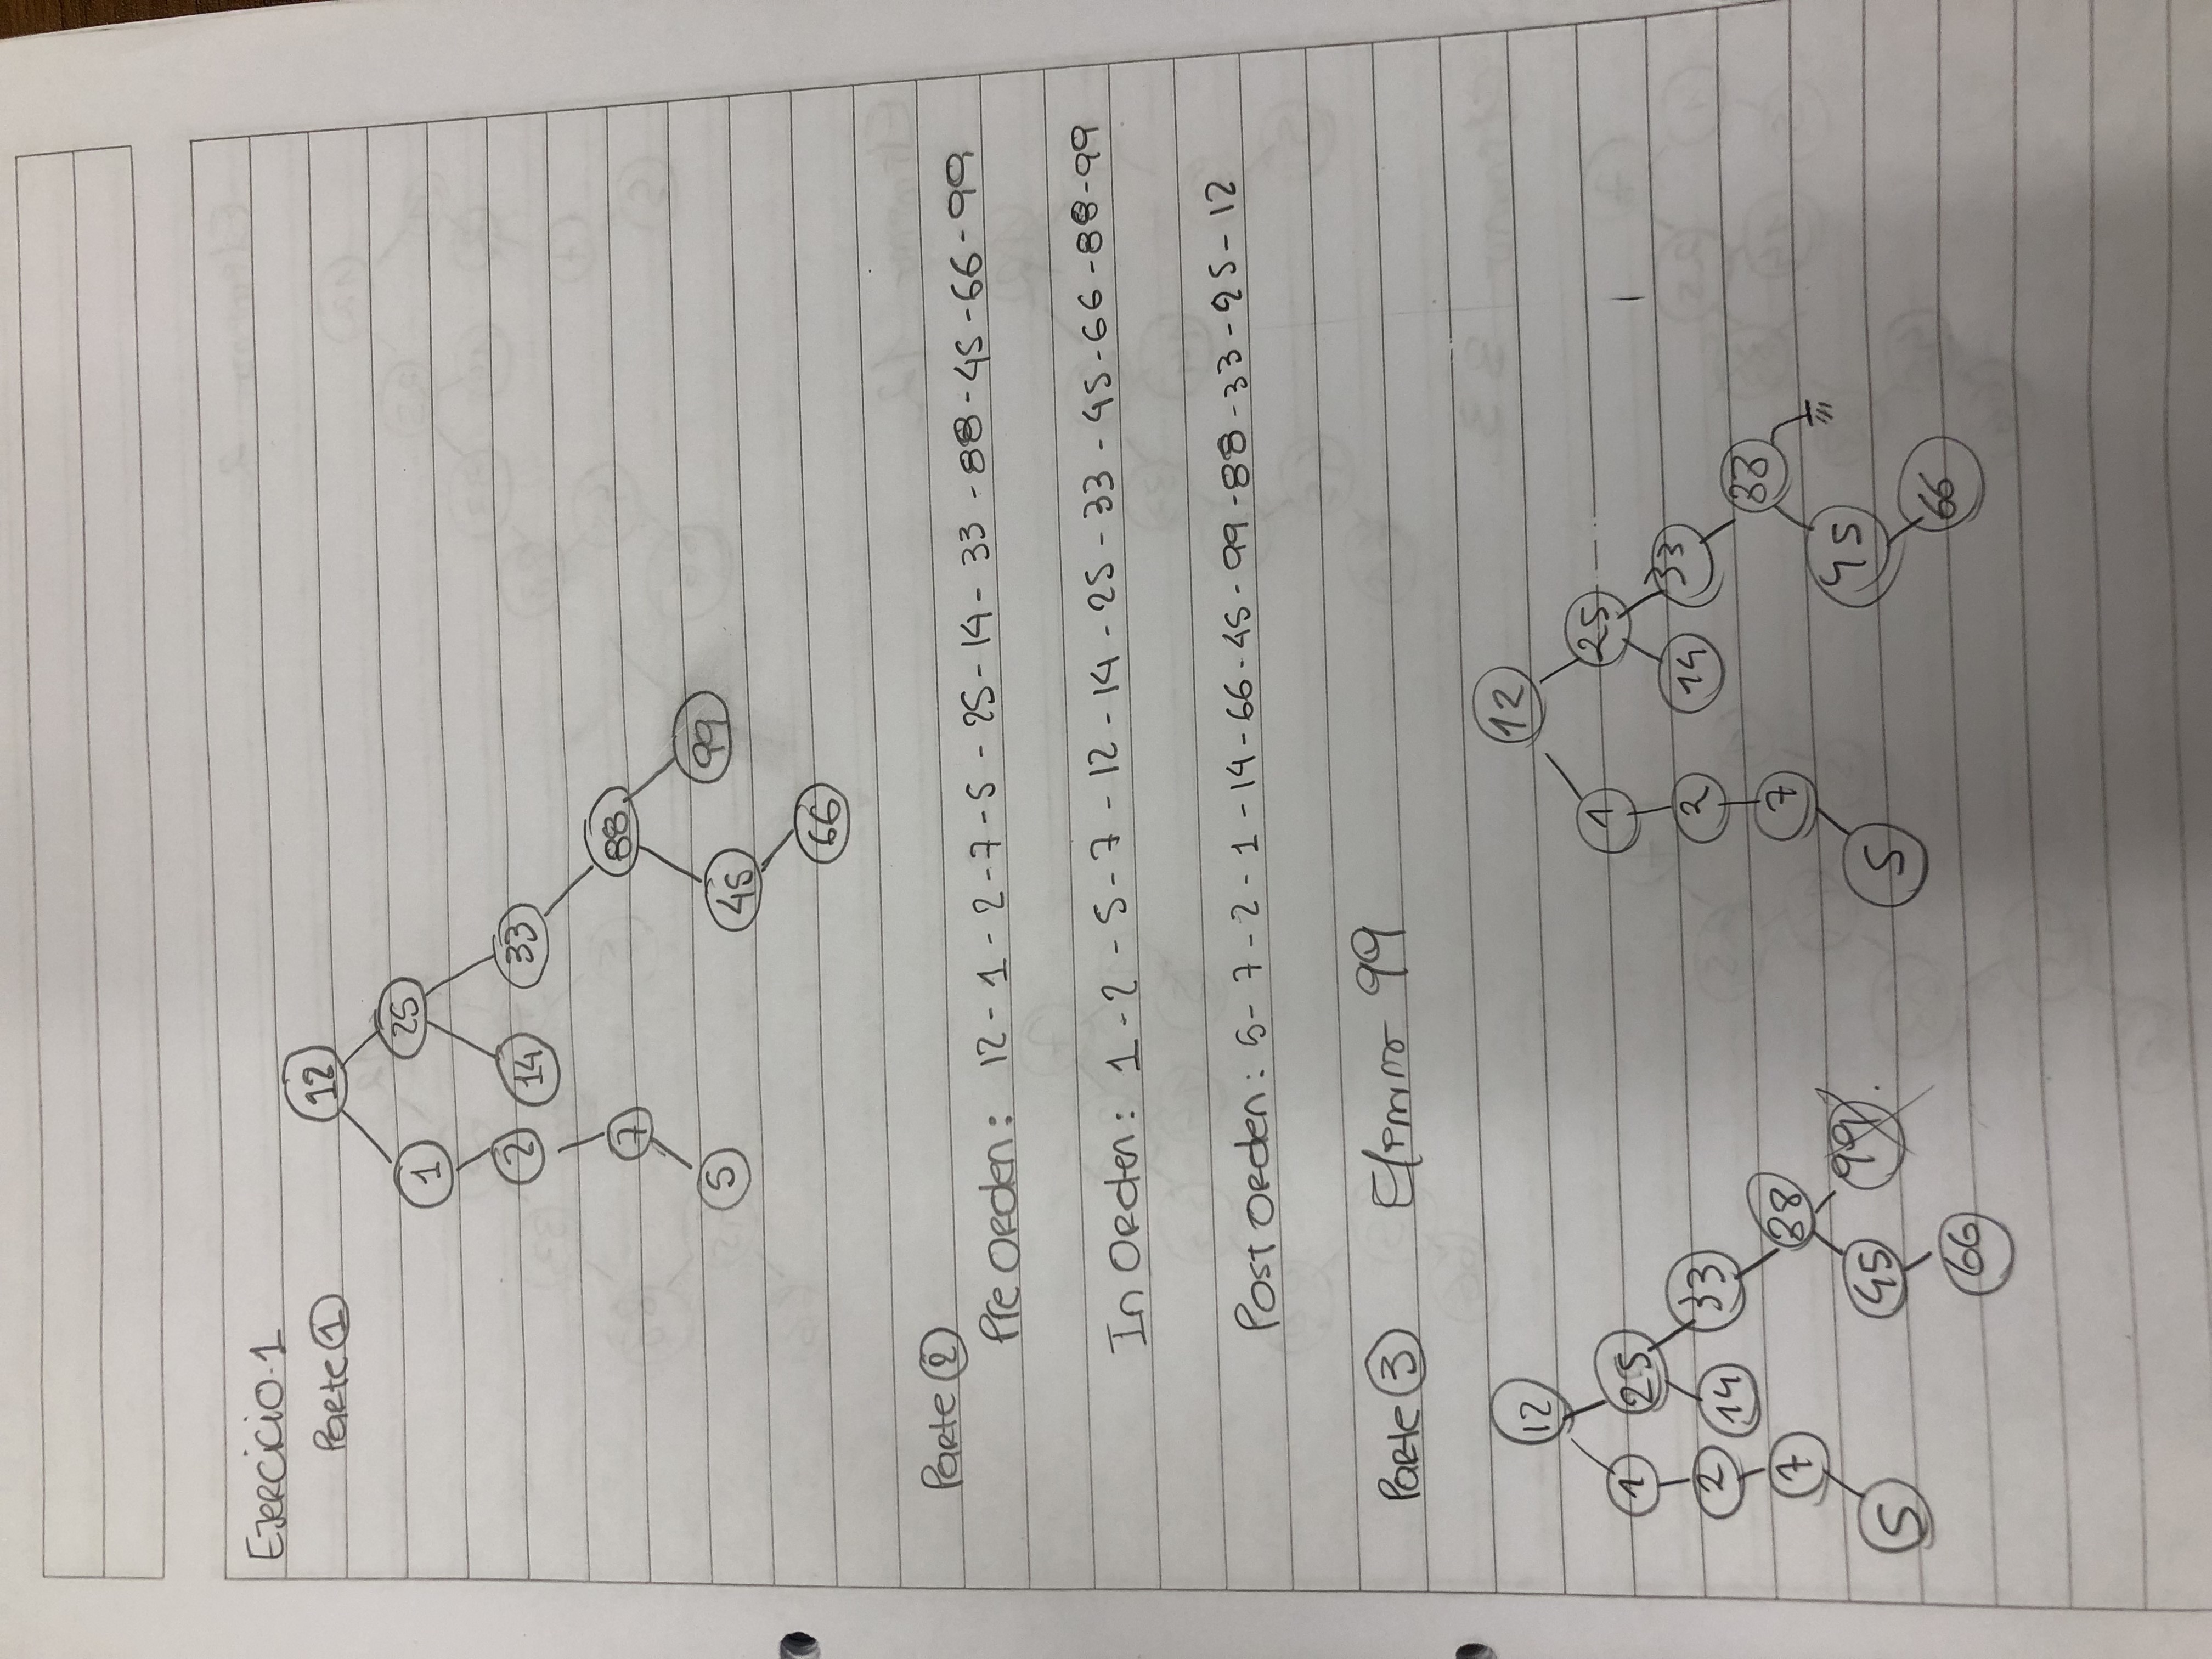 Ejercicio. 1
Parte 1
12
1 25
2 14 33
7 88
5 45 99
66
Parte 2
Pre Orden: 12 - 1 - 2 - 7 - 5 - 25 - 14 - 33 - 88 - 45 - 66 - 99
In Orden: 1 - 2 - 5 - 7 - 12 - 14 - 25 - 33 - 45 - 66 - 88 - 99
Post Orden: 5 - 7 - 2 - 1 - 14 - 66 - 45 - 99 - 88 - 33 - 25 - 12
Parte 3 Eliminar 99
12
1 25
2 14 33
7 88
5 45 99
66
12
1 25
2 14 33
7 88
5 45
66